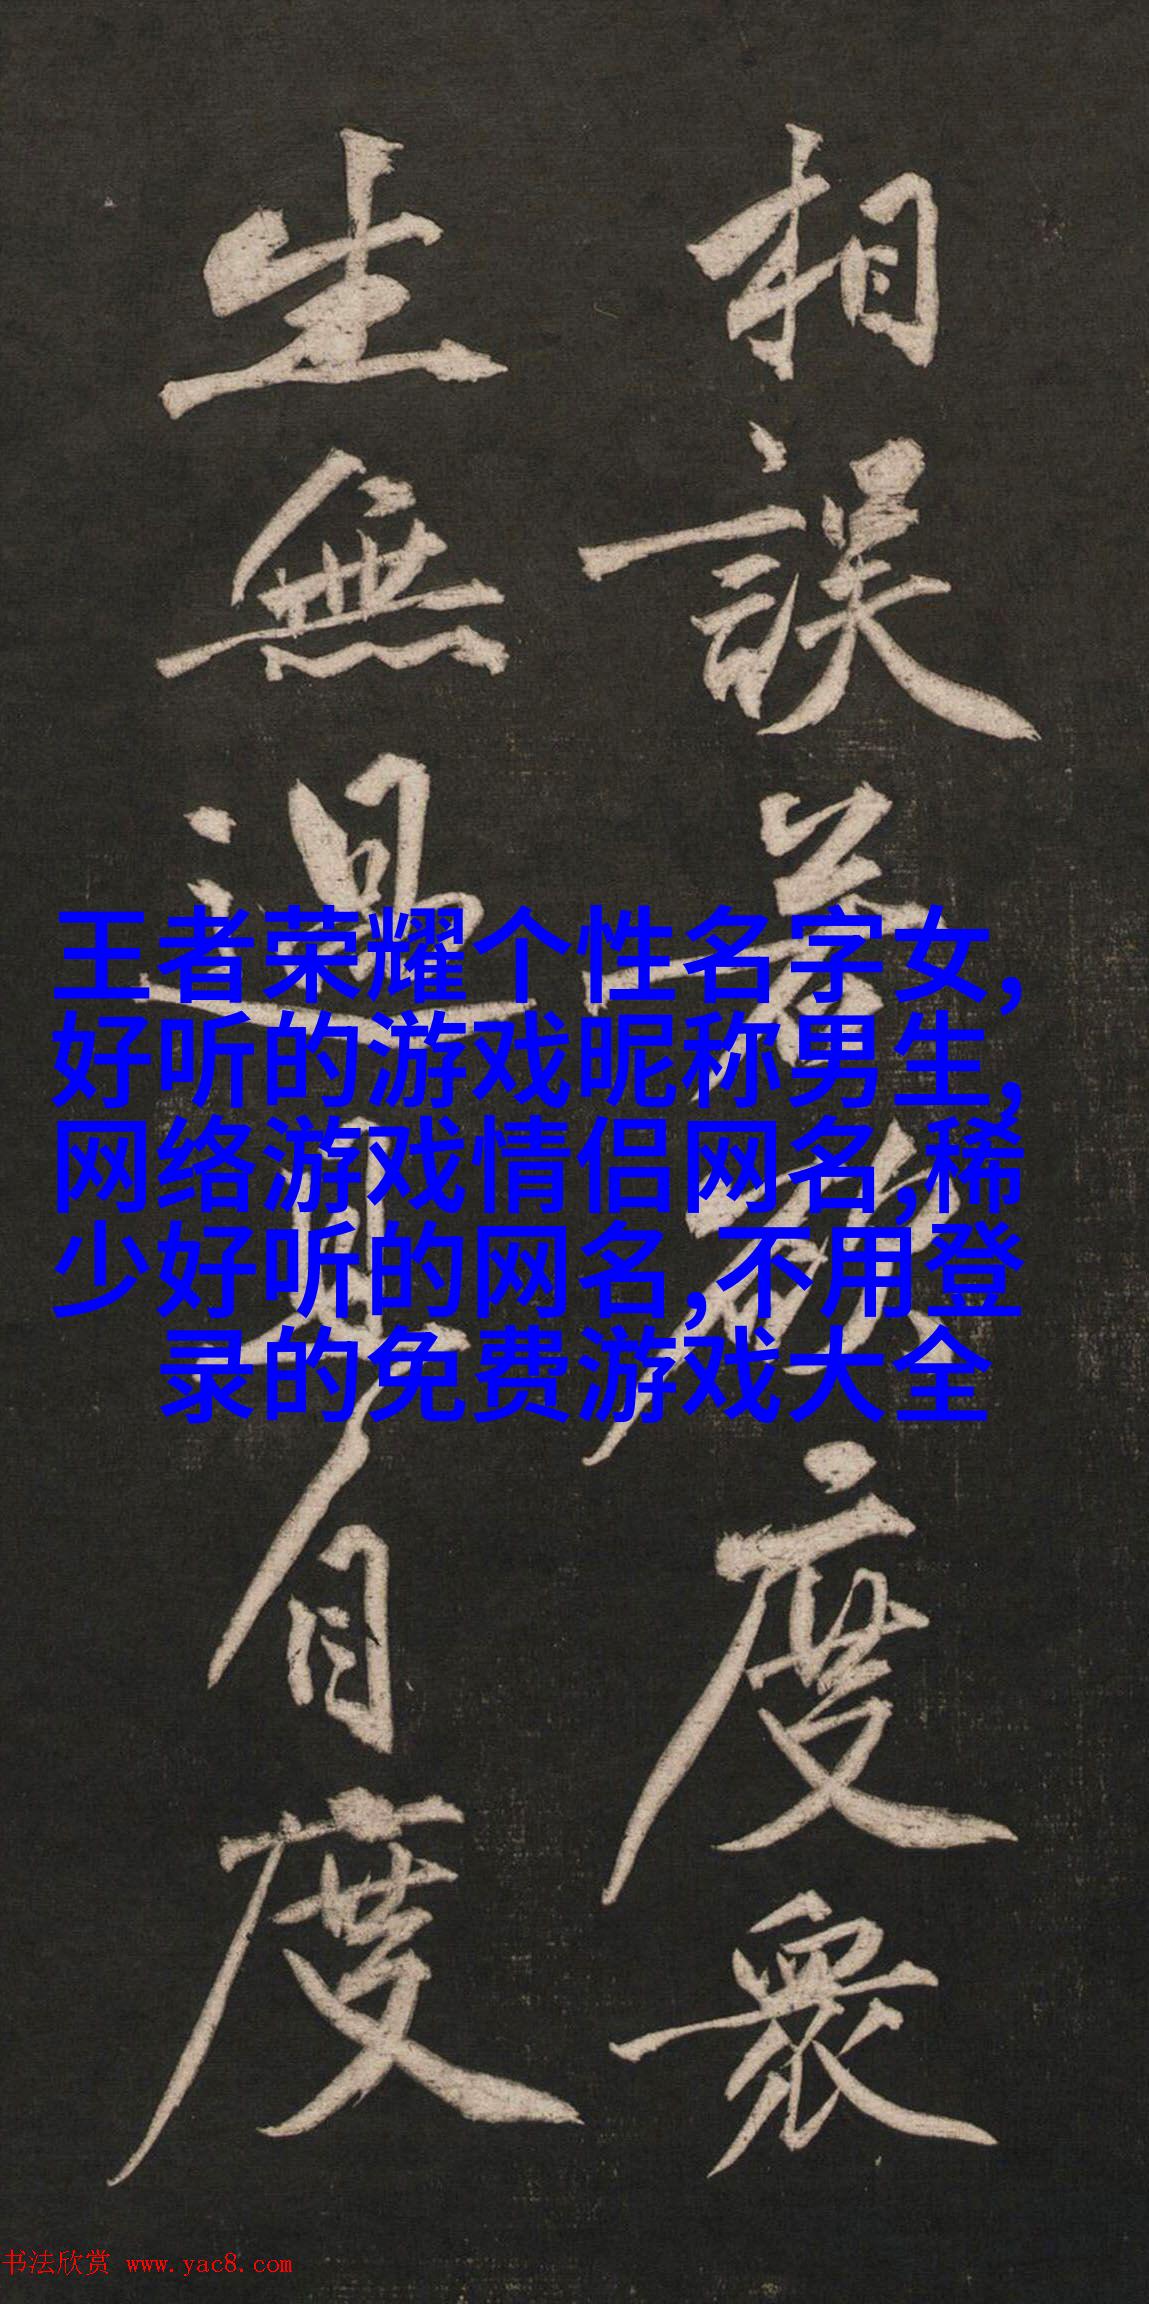 相誤若欲度衆
生無過且自度
王者荣耀个性名字女,
好听的游戏昵称男生,
网络游戏情侣网名,稀
少好听的网名,不用登
录的免费游戏大全
书法欣赏 www.yac8.com